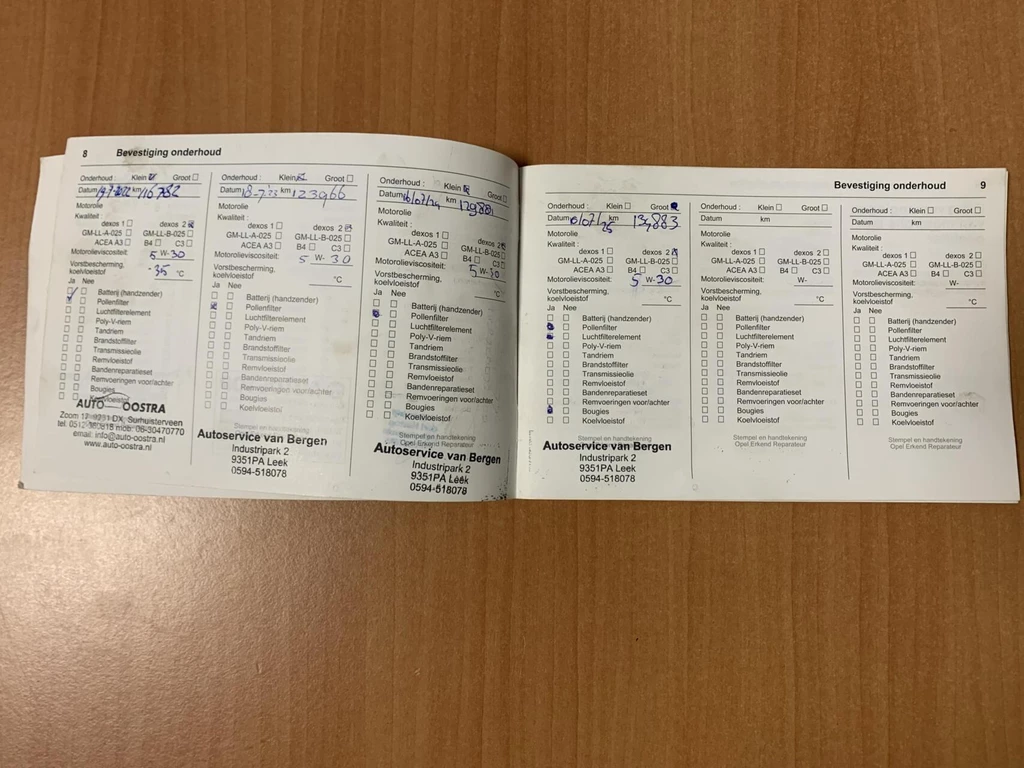 8 Bevestiging onderhoud
Onderhoud : Klein Groot
Datum 14-7-2022 km 116782
Motorolie
Kwaliteit :
dexos 1 dexos 2
GM-LL-A-025 GM-LL-B-025
ACEA A3 B4 C3
Motorolieviscositeit: 5 W-30
Vorstbescherming,
koelvloeistof -35 °C
Ja Nee
Batterij (handzender)
Pollenfilter
Luchtfilterelement
Poly-V-riem
Tandriem
Brandstoffilter
Transmissieolie
Remvloeistof
Bandenreparatieset
Remvoeringen voor/achter
Bougies
Koelvloeistof
AUTO OOSTRA
Zoom 17 9231 DX Surhuisterveen
tel. mob: 06-30470770
email: info@auto-oostra.nl
www.auto-oostra.nl
Onderhoud : Klein Groot
Datum 18-7-'23 km 123966
Motorolie
Kwaliteit :
dexos 1 dexos 2
GM-LL-A-025 GM-LL-B-025
ACEA A3 B4 C3
Motorolieviscositeit: 5 W-30
Vorstbescherming,
koelvloeistof °C
Ja Nee
Batterij (handzender)
Pollenfilter
Luchtfilterelement
Poly-V-riem
Tandriem
Brandstoffilter
Transmissieolie
Remvloeistof
Bandenreparatieset
Remvoeringen voor/achter
Bougies
Koelvloeistof
Stempel en handtekening
Autoservice van Bergen
Industripark 2
9351PA Leek
0594-518078
Onderhoud : Klein Groot
Datum /07/24 km
Motorolie
Kwaliteit :
dexos 1 dexos 2
GM-LL-A-025 GM-LL-B-025
ACEA A3 B4 C3
Motorolieviscositeit: 5 W-30
Vorstbescherming,
koelvloeistof °C
Ja Nee
Batterij (handzender)
Pollenfilter
Luchtfilterelement
Poly-V-riem
Tandriem
Brandstoffilter
Transmissieolie
Remvloeistof
Bandenreparatieset
Remvoeringen voor/achter
Bougies
Koelvloeistof
Stempel en handtekening
Autoservice van Bergen
Industripark 2
9351PA Leek
0594-518078
Bevestiging onderhoud 9
Onderhoud : Klein Groot
Datum /07/25 km
Motorolie
Kwaliteit :
dexos 1 dexos 2
GM-LL-A-025 GM-LL-B-025
ACEA A3 B4 C3
Motorolieviscositeit: 5 W-30
Vorstbescherming,
koelvloeistof °C
Ja Nee
Batterij (handzender)
Pollenfilter
Luchtfilterelement
Poly-V-riem
Tandriem
Brandstoffilter
Transmissieolie
Remvloeistof
Bandenreparatieset
Remvoeringen voor/achter
Bougies
Koelvloeistof
Stempel en handtekening
Autoservice van Bergen
Industripark 2
9351PA Leek
0594-518078
Onderhoud : Klein Groot
Datum km
Motorolie
Kwaliteit :
dexos 1 dexos 2
GM-LL-A-025 GM-LL-B-025
ACEA A3 B4 C3
Motorolieviscositeit: W-
Vorstbescherming,
koelvloeistof °C
Ja Nee
Batterij (handzender)
Pollenfilter
Luchtfilterelement
Poly-V-riem
Tandriem
Brandstoffilter
Transmissieolie
Remvloeistof
Bandenreparatieset
Remvoeringen voor/achter
Bougies
Koelvloeistof
Stempel en handtekening
Opel Erkend Reparateur
Onderhoud : Klein Groot
Datum km
Motorolie
Kwaliteit :
dexos 1 dexos 2
GM-LL-A-025 GM-LL-B-025
ACEA A3 B4 C3
Motorolieviscositeit: W-
Vorstbescherming,
koelvloeistof °C
Ja Nee
Batterij (handzender)
Pollenfilter
Luchtfilterelement
Poly-V-riem
Tandriem
Brandstoffilter
Transmissieolie
Remvloeistof
Bandenreparatieset
Remvoeringen voor/achter
Bougies
Koelvloeistof
Stempel en handtekening
Opel Erkend Reparateur